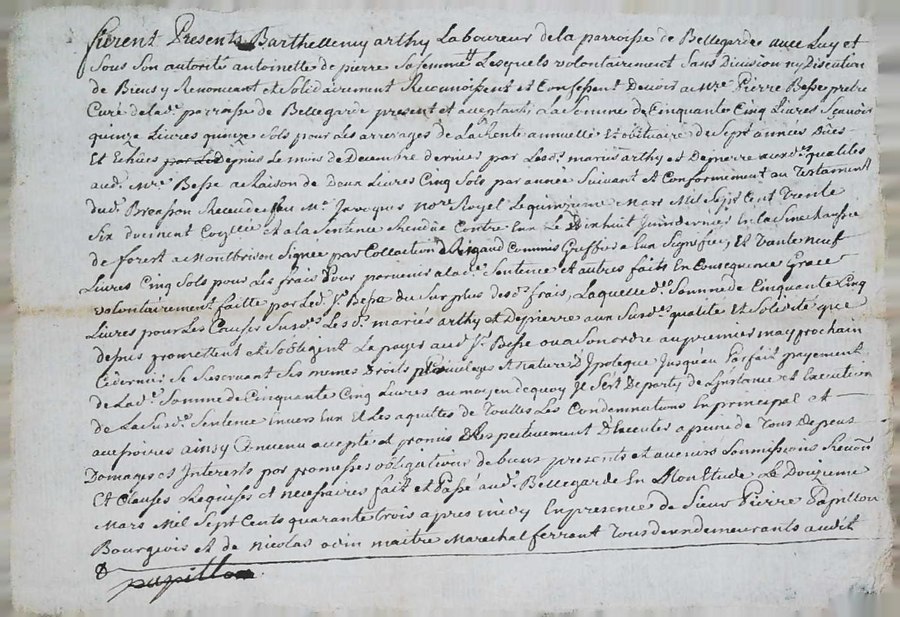 furent Presents Barthellemy arthy Laboureur de la parroisse de Bellegarde avec Luy et
Sous Son autorité antoinette de pierre Sa femme Lesquels volontairement Sans Division ny Discution
de Biens y Renoncant et Solidairement Reconoissent et Confessent Devoir a Mre Pierre Besse pretre
Curé de lad. parroisse de Bellegarde present et acceptant La Somme de Cinquante Cinq Livres Scavoir
quinze Livres quinze Sols pour Les arrerages de La Rente annuelle et obituaire de Sept années Dües
Et Echües par Led depuis Le mois de Decembre dernier par Lesd. mariés arthy et Depierre auxd. qualités
aud. Mre Besse a Raison de Deux Livres Cinq Sols par année Suivant et Conformement au Testament
dud. Breasson Receu de feu Me Jacques nore Royel Le quinzieme Mars Mil Sept Cent Trente
Six et a la Sentence Rendüe Contre Eux Le Dixhuit Juin dernier En la Sinechaussée
de forest a Montbrison Signée par Collaction Rigaud Commis Greffier a Eux Signifiée, Et Trante neuf
Livres Cinq Sols pour Les frais pour parvenir a lad. Sentence et autres faits En Consequence Grace
volontairement faitte par Led. Sr Besse du Sur plus desd. frais, Laquelle d. Somme de Cinquante Cinq
Livres pour Les Causes Susd. Lesd. mariés arthy et Depierre aux Susd. qualité et Solidité que
depuis promettent et Sobligent La payer aud. Sr Besse ou a Son ordre au premier may prochain
Ce dernier Se Reservant Ses memes Droits privileges et nature D'ipoteque Jusqu'au parfait payement
de Lad. Somme de Cinquante Cinq Livres au moyen de quoy Il Sest Departy de L'instance et Execution
de La Susd. Sentence Envers Eux et Les aquittes de Touttes Les Condemnations En principal et
accessoires ainsy Convenu accepté et promis Respectivement D'Executer a peine de Tous Depens
Domages et Interests par promesses obligations de biens presents et avenirs Soumissions Renons
Et Clauses Requises et necessaires fait et Passé aud. Bellegarde En L'Estude Le Douzieme
Mars Mil Sept Cents quarante trois apres midy En presence de Sieur Pierre Papillon
Bourgeois et de nicolas odin maitre Marechal ferrant Tous deux demeurants audit
papillon